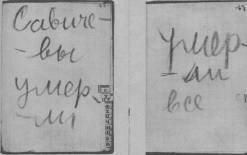 Савиче-
-вы
умер-
-ли
умер-
-ли
все